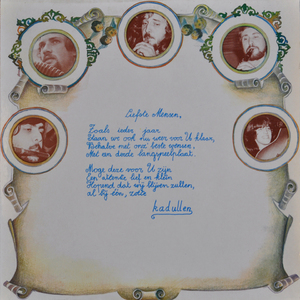 Liefste Mensen,
Zoals ieder jaar
staan we ook nu weer voor U klaar,
Behalve met onze beste wensen,
Met een derde langspeelplaat
Moge deze voor U zijn
Een attentie lief en klein
Hopend dat wij blijven zullen,
al bij één, zotte
kadullen